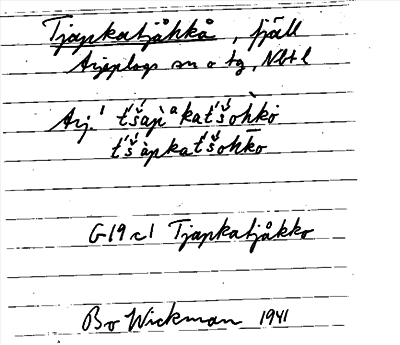 Tjapkatjåhkå, fjäll
Arjeplogs sn o tg, Nbt l
Arj.¹ t́š́ap̀ᵃkat́š́oh̀kȯ
t́š́àpkat́š́oh̄ko
G19 c1 Tjapkatjåkko
Bo Wickman 1941